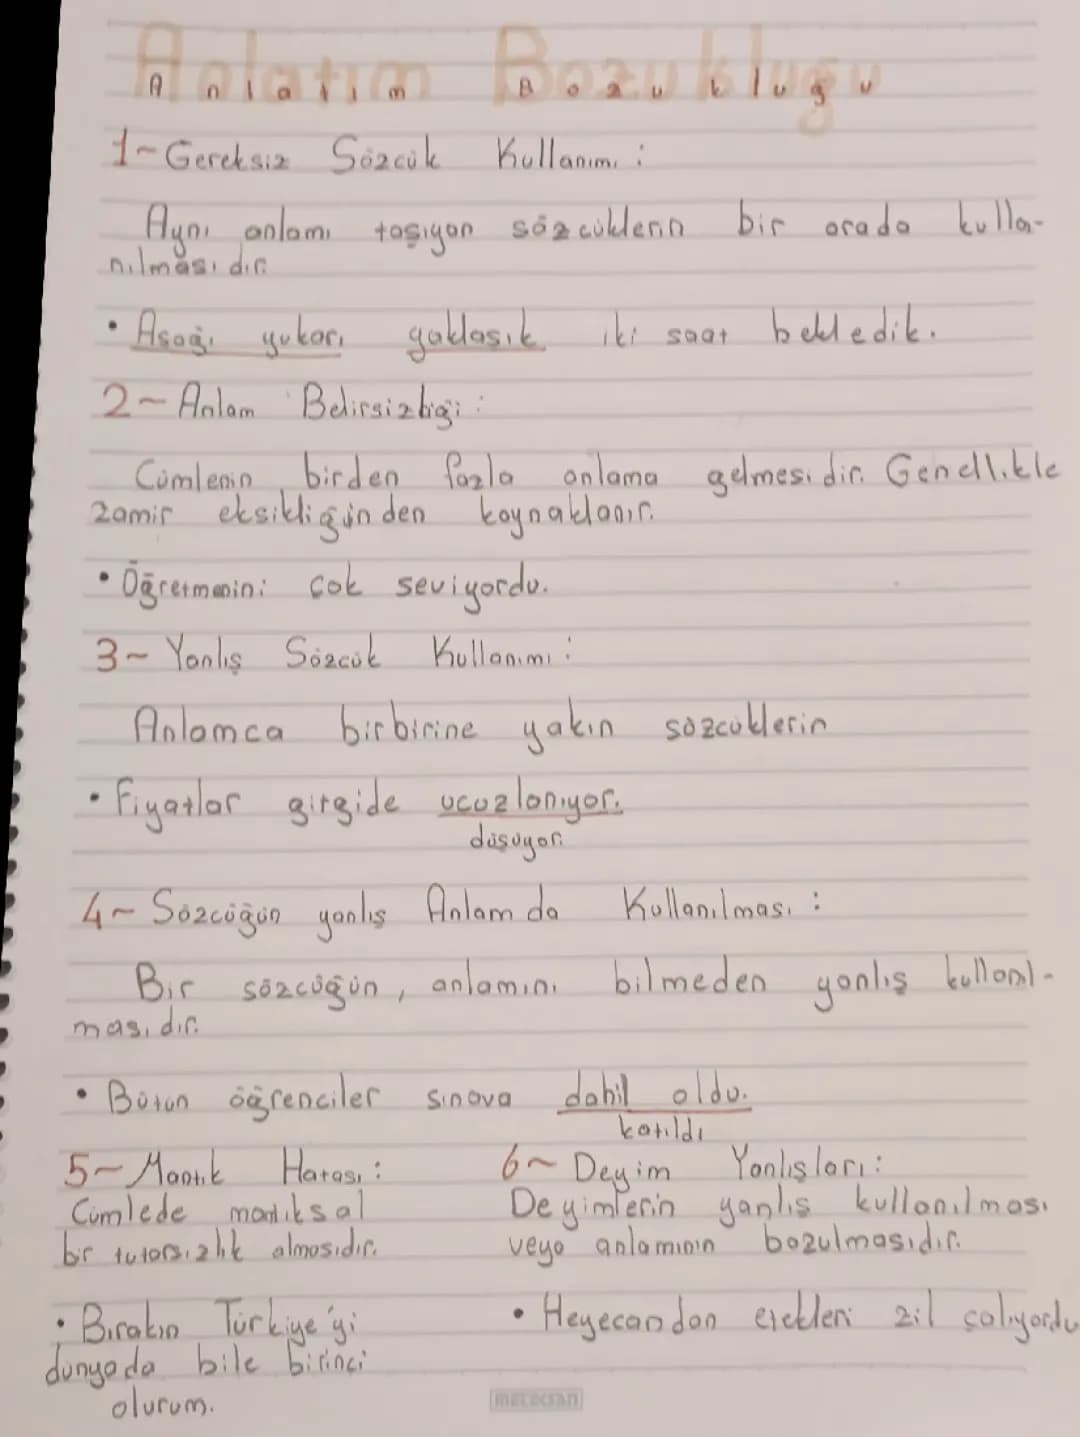 Anlatım Bozukluğu
1~ Gereksiz Sözcük Kullanımı :
Aynı anlamı taşıyan sözcüklerin bir arada kulla-
nılmasıdır.
• Aşağı yukarı yaklaşık iki saat bekledik.
2~ Anlam Belirsizliği :
Cümlenin birden fazla anlama gelmesidir. Genellikle
zamir eksikliğinden kaynaklanır.
• Öğretmenini çok seviyordu.
3~ Yanlış Sözcük Kullanımı :
Anlamca birbirine yakın sözcüklerin
• Fiyatlar gitgide ucuzlanıyor.
düşüyor.
4~ Sözcüğün yanlış Anlamda Kullanılması :
Bir sözcüğün, anlamını bilmeden yanlış kullanıl-
masıdır.
• Bütün öğrenciler sınava dahil oldu.
katıldı
5~ Mantık Hatası :
Cümlede mantıksal
bir tutarsızlık almasıdır.
• Bırakın Türkiye'yi
dünyada bile birinci
olurum.
6~ Deyim Yanlışları :
Deyimlerin yanlış kullanılması
veya anlamının bozulmasıdır.
• Heyecandan etekleri zil çalıyordu
metecsan